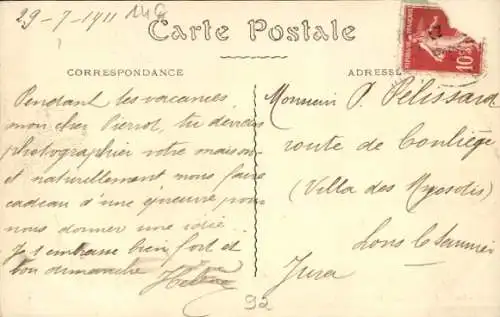 29-7-1911
Carte Postale
CORRESPONDANCE
ADRESSE
10c
Pendant les vacances
mon cher Pierrot, tu devrais
photographier votre maison
et naturellement nous faire
cadeau d'une épreuve pour
nous donner une idée.
Je t'embrasse bien fort et
bon dimanche Hélène
Monsieur P. Pélissard
route de Conliège
(Villa des Myosotis)
Lons le Saunier
Jura
92